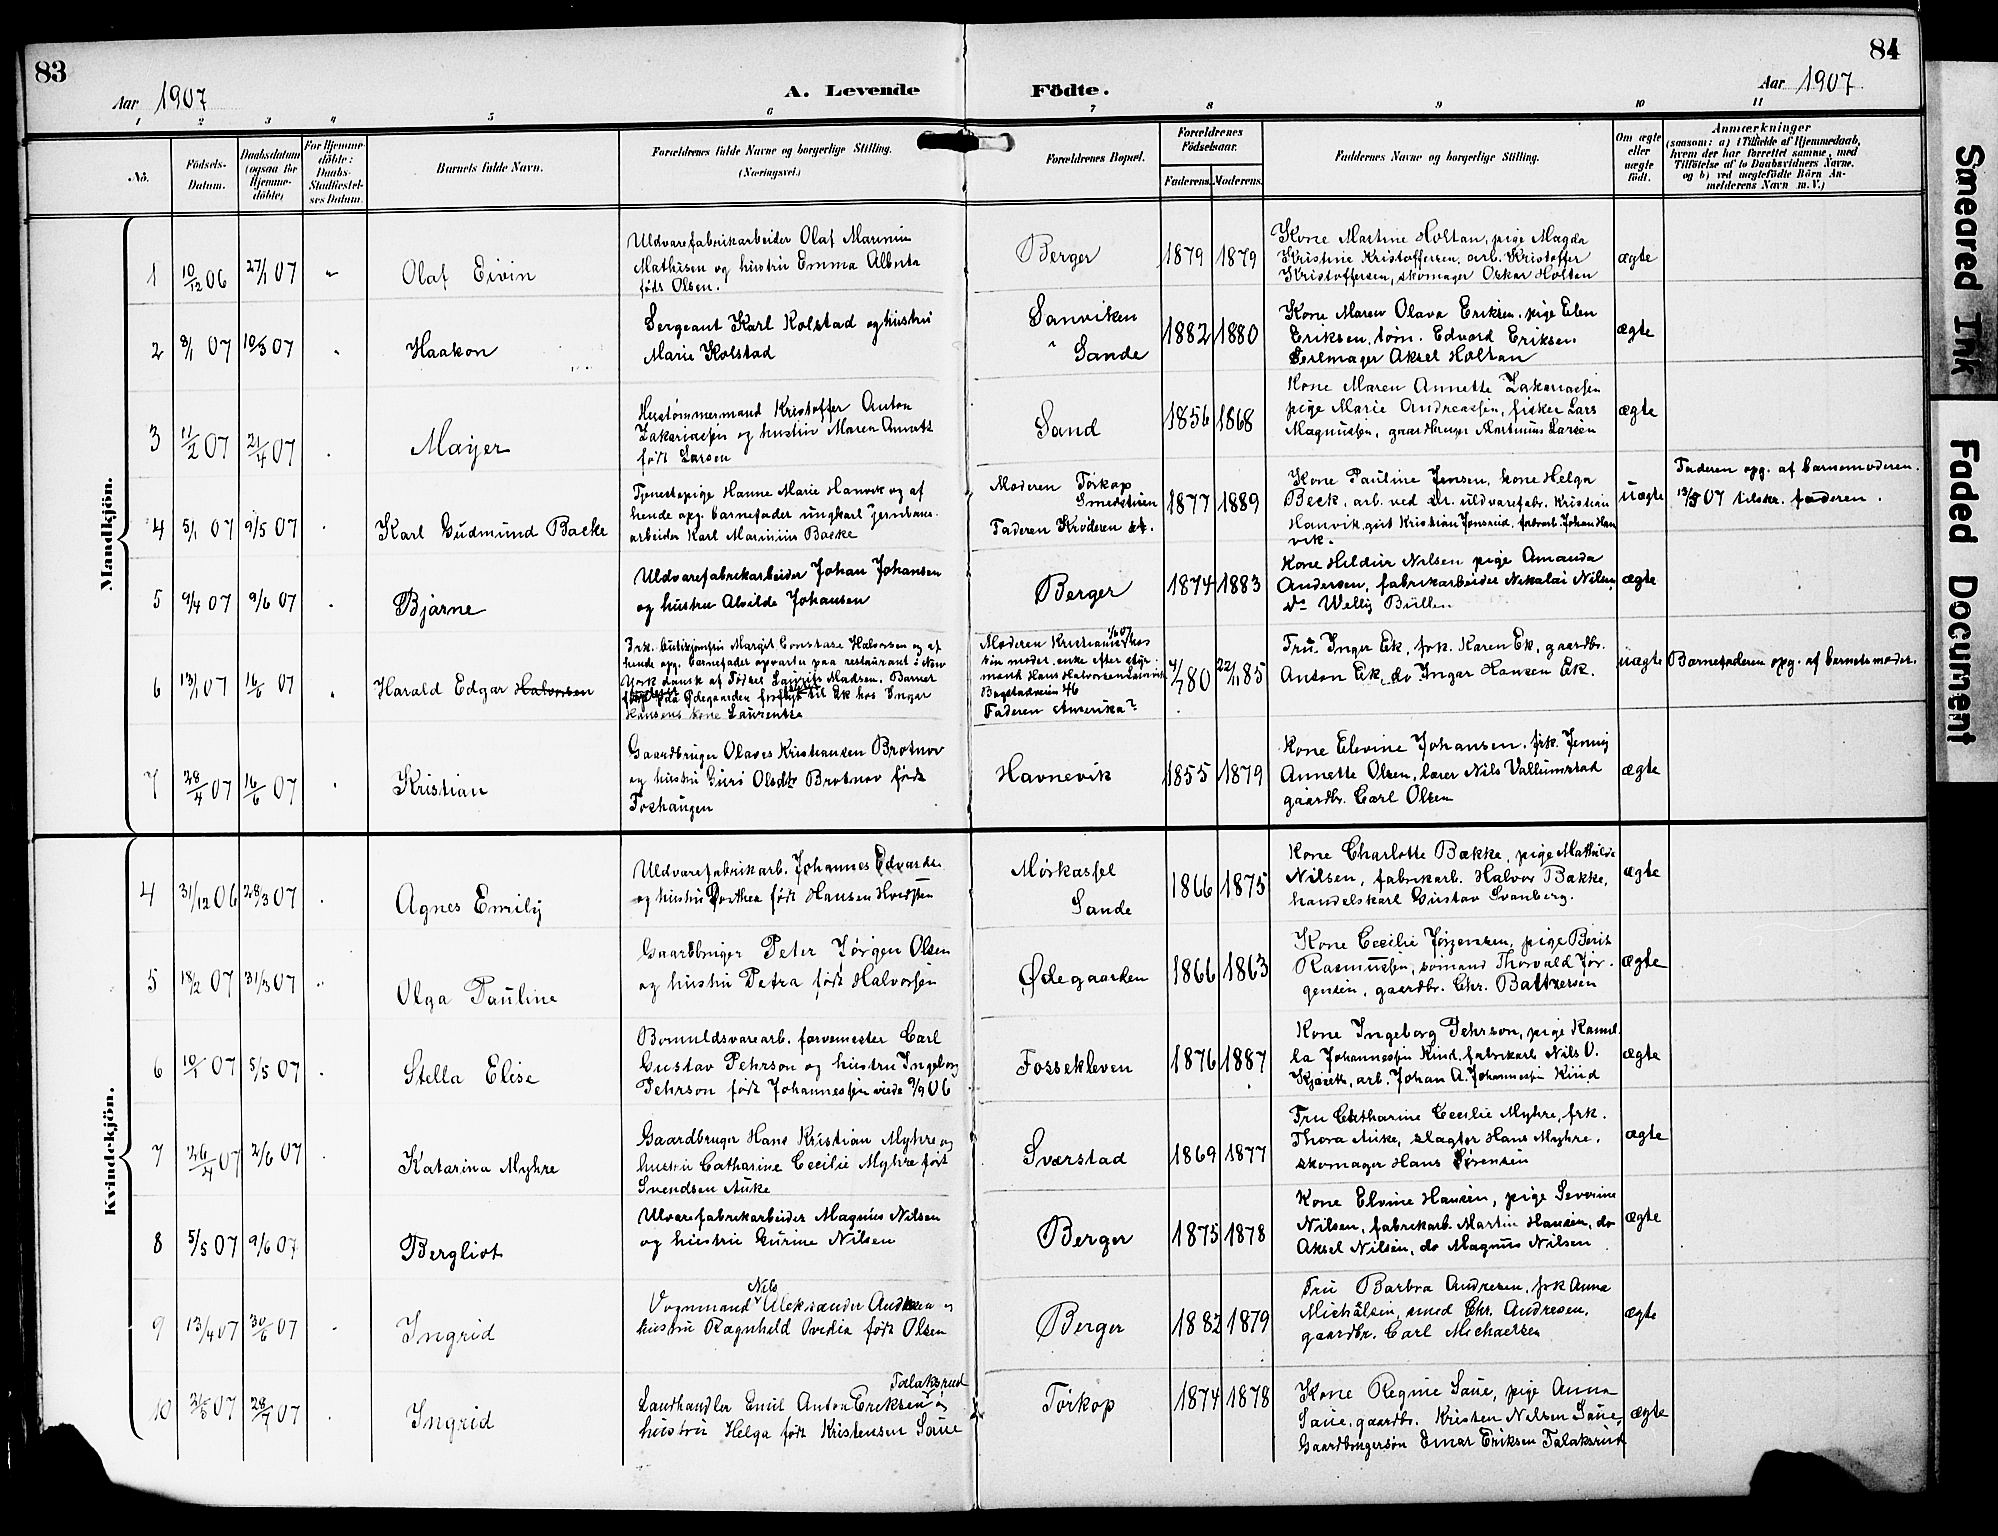 83
84
Aar 1907
A. Levende
Födte.
Aar 1907
1 2 3 4 5 6 7 8 9 10 11
No.
Födsels-
Datum.
Daabsdatum
(ogsaa for
Hjemme-
döbte)
For Hjemme-
döbte:
Daabs-
Stadfæstel-
ses Datum.
Barnets fulde Navn.
Forældrenes fulde Navne og borgerlige Stilling.
(Næringsvei.)
Forældrenes Bopæl.
Forældrenes
Födselsaar.
Faderens. Moderens.
Faddernes Navne og borgerlige Stilling.
Om ægte
eller
uægte
födt.
Anmærkninger
(saasom: a) i Tilfælde af Hjemmedaab,
hvem der har forrettet samme, med
Tilföielse af to Daabsvidners Navne.
og b) ved uægtefödte Börn An-
melderens Navn m. V.)
Mandkjön.
1 10/12 06 27/1 07 Olaf Eivin
Uldvarefabrikarbeider Olaf Marinius
Mathisen og hustru Emma Alberta
født Olsen.
Berger 1879 1879
Kone Martine Holtan, pige Magda
Kristine Kristoffersen, arb. Kristoffer
Kristoffersen, skomager Oskar Holtan
ægte
2 8/1 07 10/3 07 Haakon
Sergeant Karl Kolstad og hustru
Marie Kolstad
Sanviken
Sande
1882 1880
Kone Maren Olava Eriksen, pige Elen
Eriksen, tøm. Edvard Eriksen
Seilmager Aksel Holtan
ægte
3 11/2 07 21/4 07 Mayer
Hustømmermand Kristoffer Anton
Zakariassen og hustru Maren Annette
født Larsen
Sand 1856 1868
Kone Maren Annette Zakariassen
pige Marie Andreassen, fisker Lars
Magnussen, gaardbruger Martinius Larsen
ægte
4 5/1 07 9/5 07 Karl Gudmund Backe
Tjenestepige Hanne Marie Hanvik og af
hende opg. barnefader ungkarl Jernbane-
arbeider Karl Marinius Backe
Moderen Tørkop
Smedstuen
Faderen Krøderen st.
1877 1889
Kone Pauline Jensen, kone Helga
Beck, arb. ved uldvarefabr. Kristian
Hanvik, Kristian Jonsrud, Johan Han
vik.
uægte
Faderen opg. af barnemoderen.
13/5 07 tilskr. faderen.
5 9/4 07 9/6 07 Bjarne
Uldvarefabrikarbeider Johan Johansen
og hustru Alvilde Johansen
Berger 1874 1883
Kone Hildur Nilsen pige Amanda
Andersen, fabrikarbeider Nikolai Nilsen,
do Welly Büllen
ægte
6 13/1 07 16/6 07 Harald Edgar Halvorsen
Frk. Margit Constase Halvorsen og af
hende opg. barnefader opvarter paa restaurant i New
York dansk af Fødsel Laurits Madsen. Barnet
paa Ødegaarden til Ek hos Ingar
Hansens kone Laurentse
Moderen Kristiania hos
sin moder, enke efter styr-
mand Hans Halvorsen
Bogstadveien 46
Faderen Amerika?
4/7 80 22/11 85
Fru Inger Ek, frk. Karen Ek, gaardbr.
Anton Ek, do Ingar Hansen Ek.
uægte
Barnefaderen opg. af barnets moder.
7 28/4 07 16/6 07 Kristian
Gaardbruger Olaves Kristiansen Brotnov
og hustru Guri Olsdtr Brotnov født
Foshaugen
Havnevik 1855 1879
Kone Elevine Johansen, frk. Jenny
Annette Olsen, lærer Nils Vallumstad
gaardbr. Carl Olsen
ægte
Kvindekjön.
4 31/12 06 28/3 07 Agnes Emily
Uldvarefabrikarb. Johannes Edvards
og hustru Dorthea født Hansen
Mørkassel
Sande
1866 1875
Kone Charlotte Bakke, pige Mathilde
Nilsen, fabrikarb. Halvor Bakke,
handelskarl Gustav Svanberg.
ægte
5 18/2 07 31/3 07 Olga Pauline
Gaardbruger Peter Jørgen Olsen
og hustru Petra født Halvorsen
Ødegaarden 1866 1863
Kone Cecilie Jørgensen, pige Berit
Rasmussen, sømand Thorvald Jør-
gensen, gaardbr. Chr. Battnersen
ægte
6 10/1 07 5/5 07 Stella Elise
Bomuldsvarearb. farvemester Carl
Gustav Pehrson og hustru Ingeborg
Pehrson født Johannessen viede 9/9 06
Fossekleven 1876 1887
Kone Ingeborg Pehrson, pige Kamil-
la Johannessen Kind, fabrikarb Nils O.
arb. Johan A. Johannessen Kind
ægte
7 26/4 07 2/6 07 Katarina Myhre
Gaardbruger Hans Kristian Myhre og
hustru Catharine Cecilie Myhre født
Svendsen Auke
Sværstad 1869 1877
Fru Catharine Cecilie Myhre, frk.
Thora Auke, slagter Hans Myhre,
skomager Hans Sørensen
ægte
8 5/5 07 9/6 07 Bergliot
Ulvarefabrikarbeider Magnus Nilsen
og hustru Gurine Nilsen
Berger 1875 1878
Kone Elvine Hansen, pige Severine
Nilsen, fabrikarb. Martin Hansen, do
Aksel Nilsen, do Magnus Nilsen
ægte
9 13/4 07 30/6 07 Ingrid
Nils
Vognmand Aleksander Andresen og
hustru Ragnhild Ovedia født Olsen
Berger 1882 1879
Fru Barbra Andresen, frk Anna
Michalsen, smed Chr. Andresen,
gaardbr. Carl Michaelsen
ægte
10 21/5 07 28/7 07 Ingrid
Talaksrud
Landhandler Emil Anton Eriksen og
hustru Helga født Kristensen Saue
Tørkop 1874 1878
Kone Regine Saue, pige Anna
Saue, gaardbr. Kristen Nilsen Saue,
Gaardbrugersøn Einar Eriksen Talaksrud
ægte
Smeared Ink
Faded Document